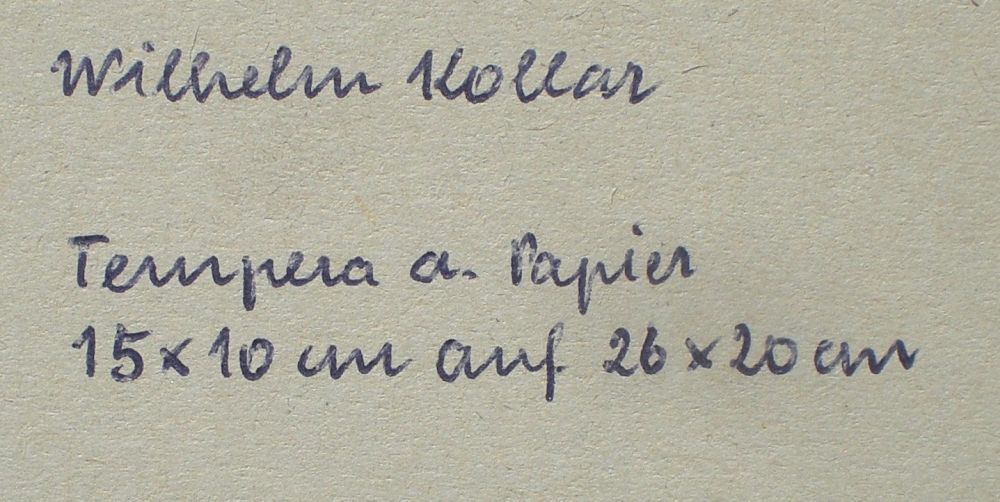 Wilhelm Kollar
Tempera a. Papier
15x10 cm auf 26x20 cm